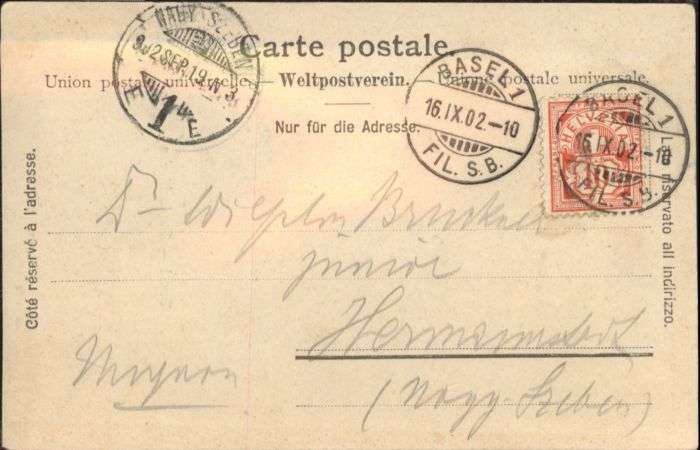 Carte postale.
Union postale universelle. — Weltpostverein. — Unione postale universale.
Nur für die Adresse.
Côté réservé à l'adresse.
Lato riservato all indirizzo.
NAGY-SZEBEN
BASEL 1
16.IX.02.-10
FIL. S. B.
HELVETIA
BASEL 1
16.IX.02.-10
FIL. S. B.
Dr Wilhelm Bruckner
junior
Hermannstadt
(Nagy-Szeben)
Ungarn